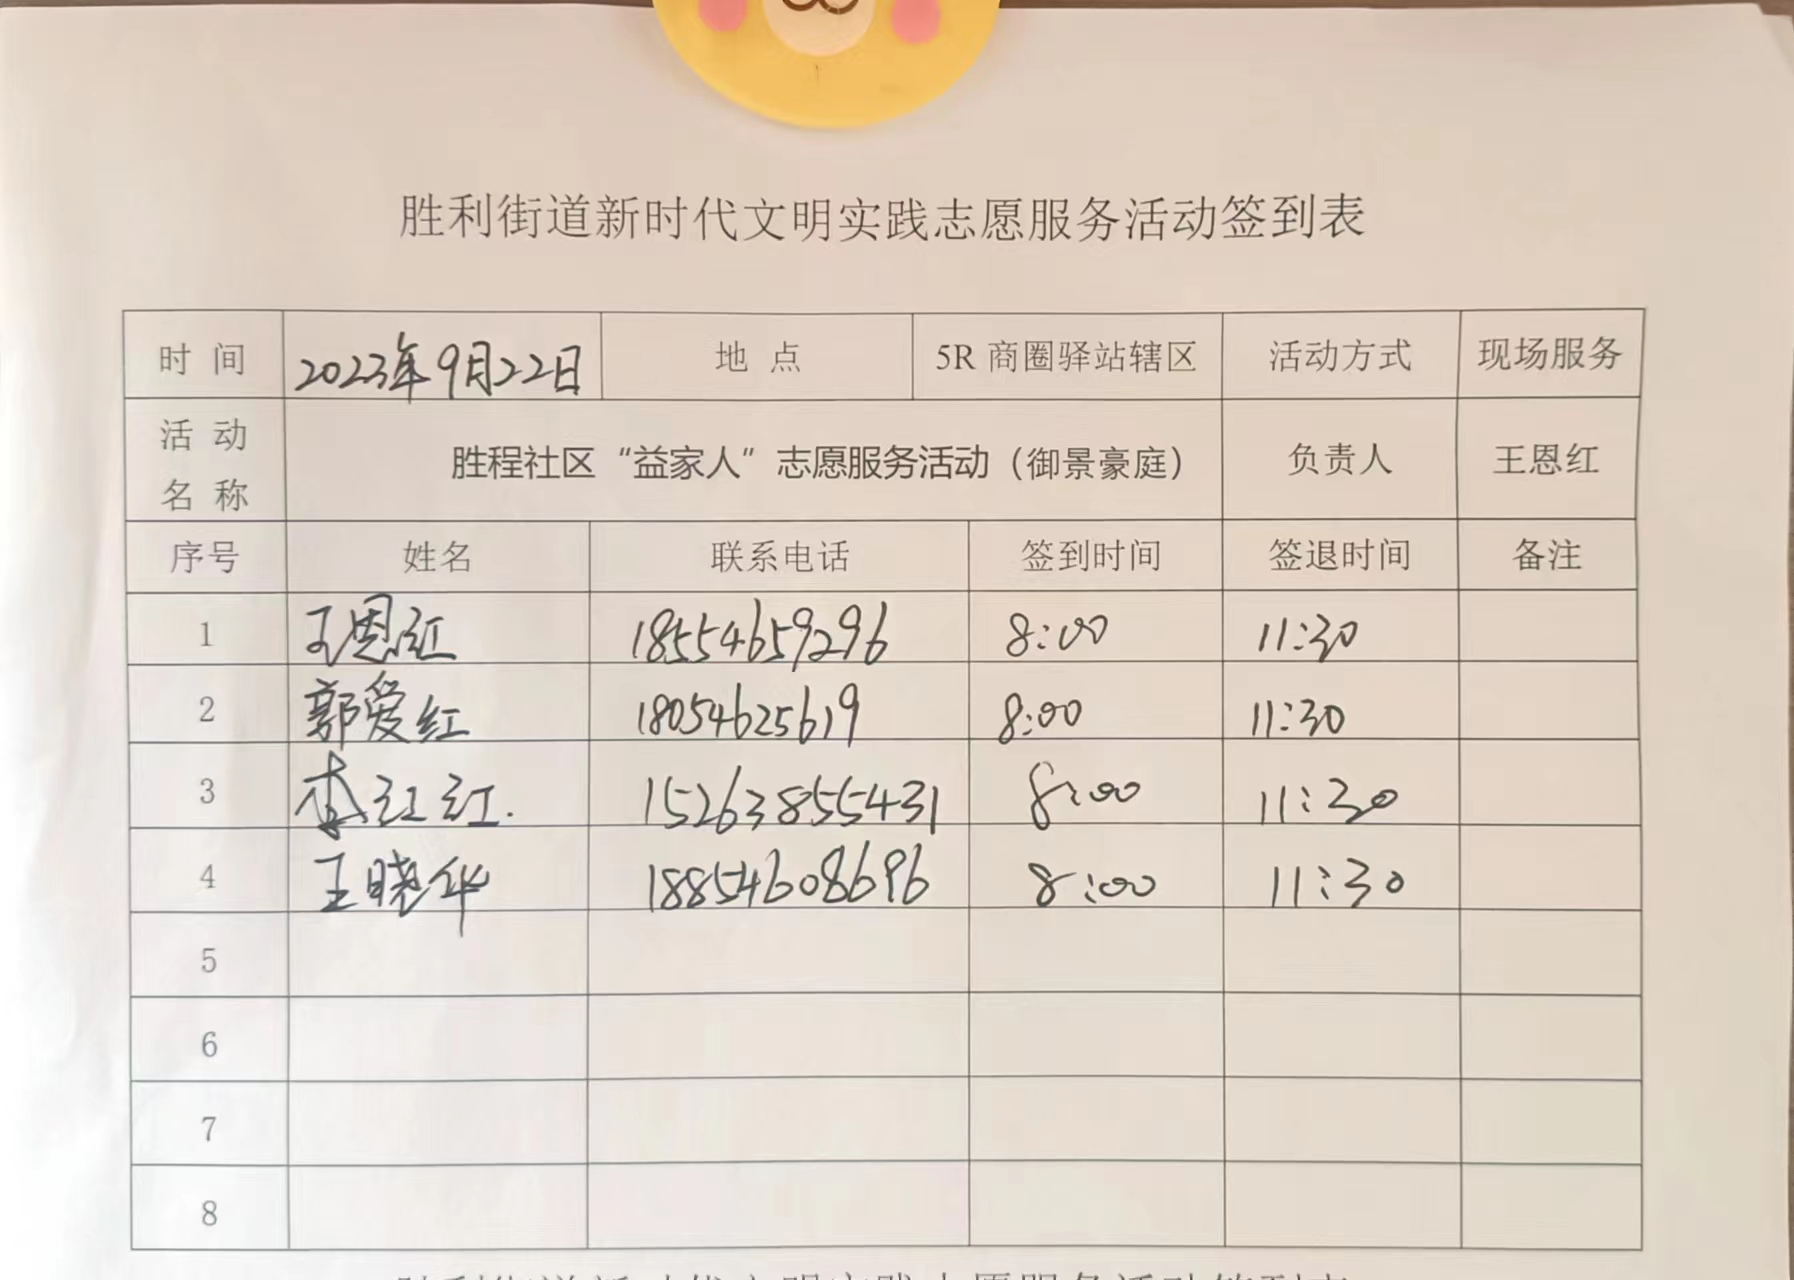 胜利街道新时代文明实践志愿服务活动签到表
时 间 2023年9月22日 地 点 5R 商圈驿站辖区 活动方式 现场服务
活 动 名 称 胜程社区“益家人”志愿服务活动（御景豪庭） 负责人 王恩红
序号 姓名 联系电话 签到时间 签退时间 备注
1 王恩红 18554659296 8:00 11:30
2 郭爱红 18054625619 8:00 11:30
3 李红红. 15263855431 8:00 11:30
4 王晓华 18854608696 8:00 11:30
5
6
7
8
胜利街道新时代文明实践志愿服务活动签到表